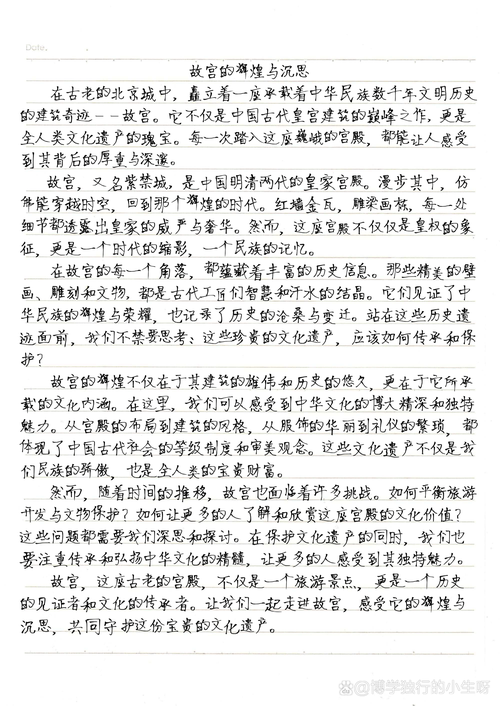 Date.
故宫的辉煌与沉思
在古老的北京城中，矗立着一座承载着中华民族数千年文明历史
的建筑奇迹--故宫。它不仅是中国古代皇宫建筑的巅峰之作，更是
全人类文化遗产的瑰宝。每一次踏入这座巍峨的宫殿，都能让人感受
到其背后的厚重与深邃。
故宫，又名紫禁城，是中国明清两代的皇家宫殿。漫步其中，仿
佛能穿越时空，回到那个辉煌的时代。红墙金瓦，雕梁画栋，每一处
细节都透露出皇家的威严与奢华。然而，这座宫殿不仅仅是皇权的象
征，更是一个时代的缩影，一个民族的记忆。
在故宫的每一个角落，都蕴藏着丰富的历史信息。那些精美的壁
画、雕刻和文物，都是古代工匠们智慧和汗水的结晶。它们见证了中
华民族的辉煌与荣耀，也记录了历史的沧桑与变迁。站在这些历史遗
迹面前，我们不禁要思考：这些珍贵的文化遗产，应该如何传承和保
护？
故宫的辉煌不仅在于其建筑的雄伟和历史的悠久，更在于它所承
载的文化内涵。在这里，我们可以感受到中华文化的博大精深和独特
魅力。从宫殿的布局到建筑的风格，从服饰的华丽到礼仪的繁琐，都
体现了中国古代社会的等级制度和审美观念。这些文化遗产不仅是我
们民族的骄傲，也是全人类的宝贵财富。
然而，随着时间的推移，故宫也面临着许多挑战。如何平衡旅游
开发与文物保护？如何让更多的人了解和欣赏这座宫殿的文化价值？
这些问题都需要我们深思和探讨。在保护文化遗产的同时，我们也
要注重传承和弘扬中华文化的精髓，让更多的人感受到其独特魅力。
故宫，这座古老的宫殿，不仅是一个旅游景点，更是一个历史
的见证者和文化的传承者。让我们一起走进故宫，感受它的辉煌与
沉思，共同守护这份宝贵的文化遗产。
@博学独行的小生呀